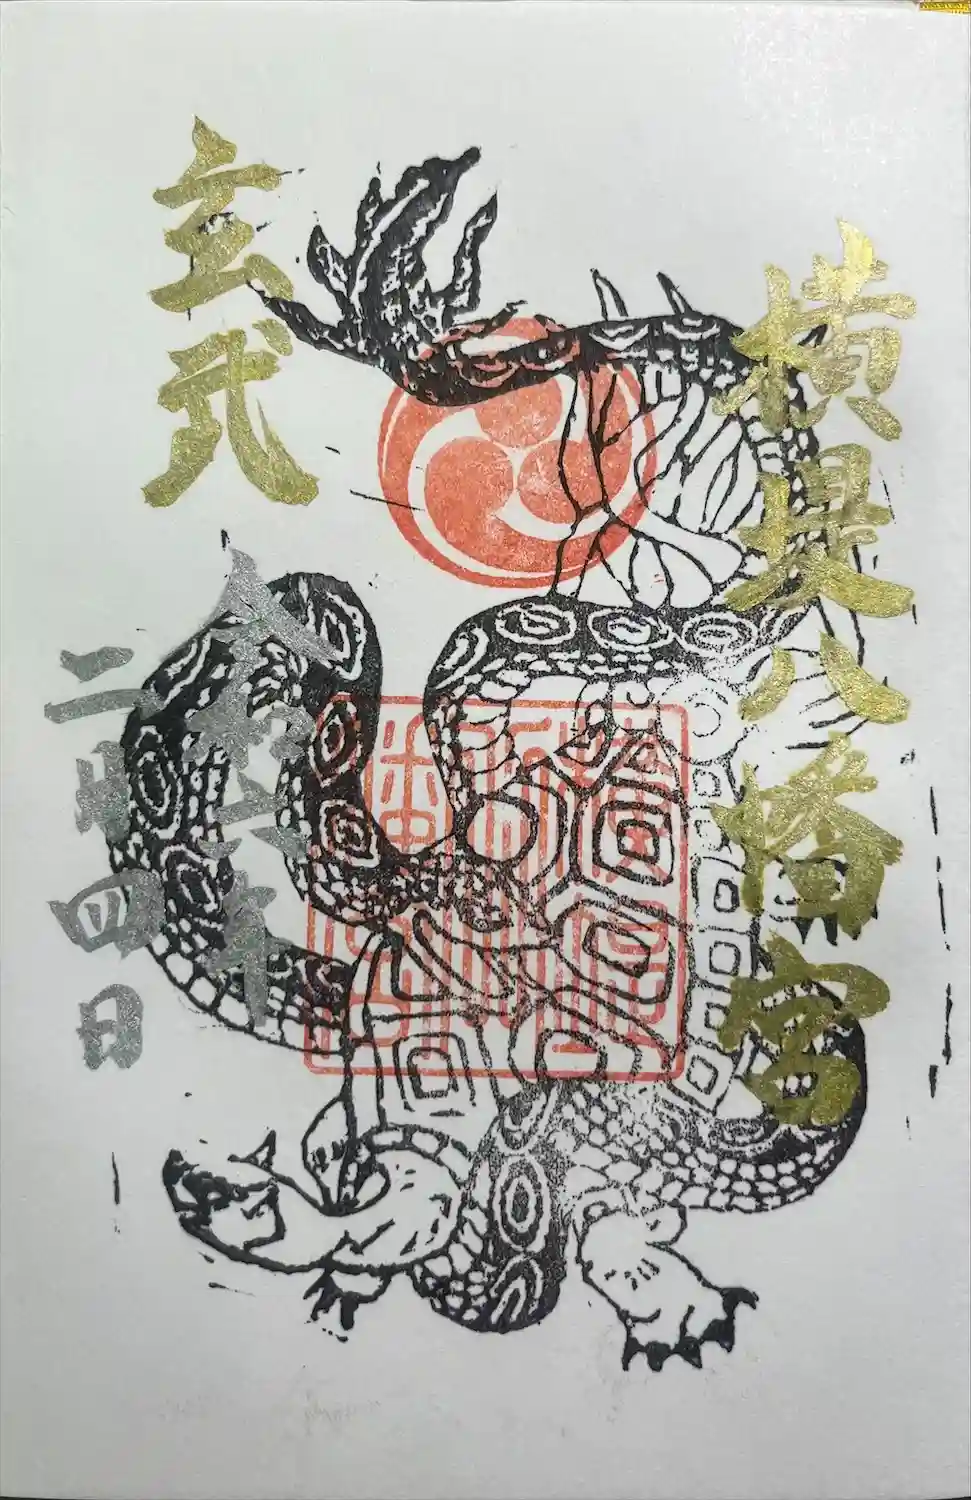 横堤八幡宮
玄武
令和六年
二月四日